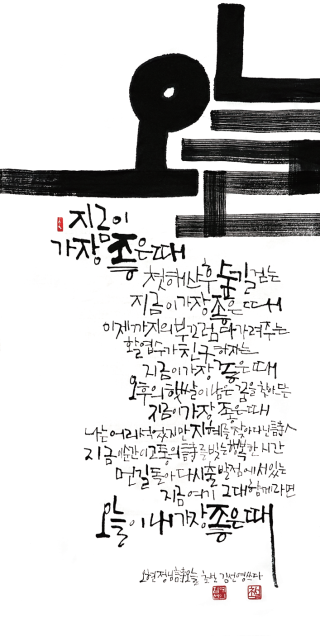 오늘
지금이
가장 좋은 때
첫 해산 후 숲길 걷는
지금이 가장 좋은 때
이제까지의 부끄럼 다 가려주는
활엽수가 친구하자는
지금이 가장 좋은 때
오후의 햇살이 남은 꿈을
지금이 가장 좋은 때
나는 어리석었지만 지혜를 찾아다닌 詩人
지금 이 순간이 고통의 詩를 빚는 행복한 시간
먼 길 돌아 다시 출발점에 서 있는
지금 여기 그대 함께라면
오늘이 내 가장 좋은 때
김선영 쓰다